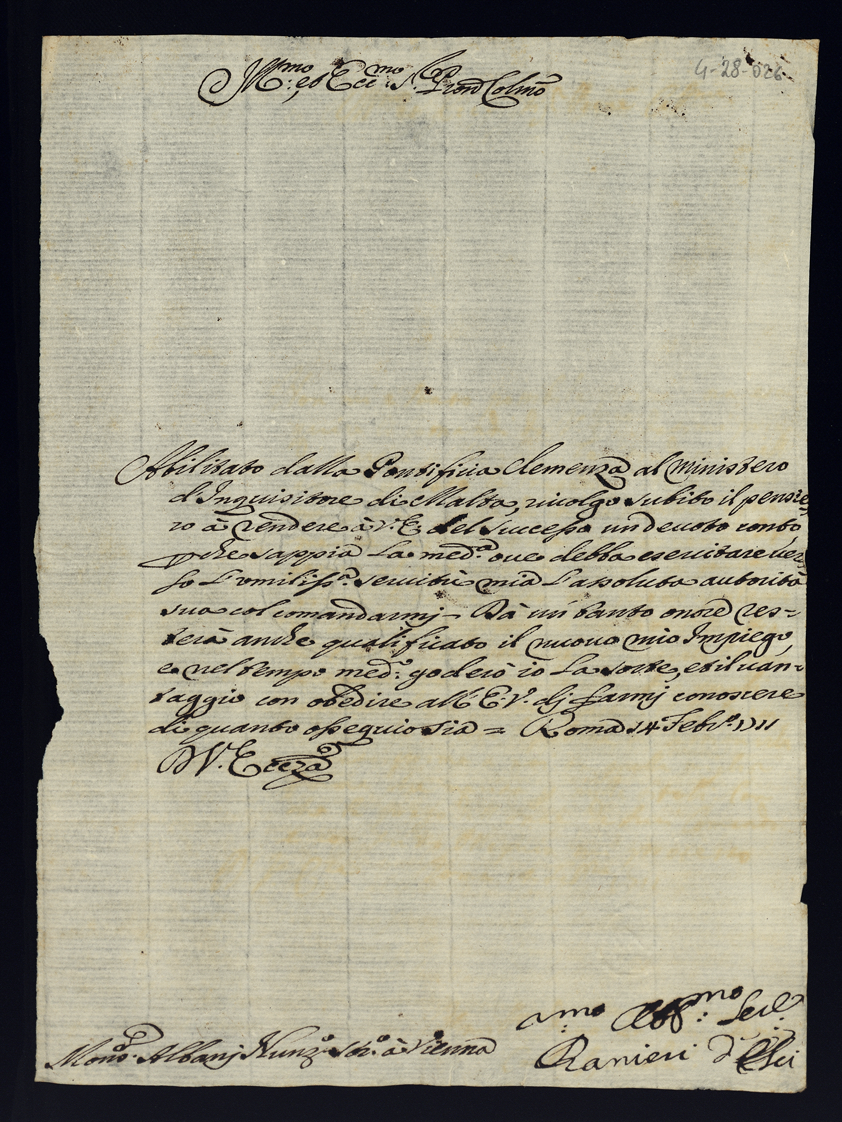 Ill.mo, et Ecc.mo S.r Pron Colmo
4-28-026
Abilitato dalla Pontificia Clemenza al Ministero
d'Inquisitore di Malta, rivolgo subito il pensie,
ro à rendere à V.E. del successo un devoto conto
p che sappia la med.a ove debba esercitare ver,
so l'umiliss.a servitù mia l'assoluta autorità
sua col comandarmj. Dà un tanto onore res=
terà anche qualificato il nuovo mio Impiego,
e nel tempo med.o goderò io la sorte, et il van=
taggio con obedire all'E.V. dj farmj conoscere
di quanto ossequio sia = Roma 14 Febr.o 1711
D V. Eccza
Mons. Albanj Nunz.o à Vienna
mo Obb.mo Ser.e
Ranieri d'Elci